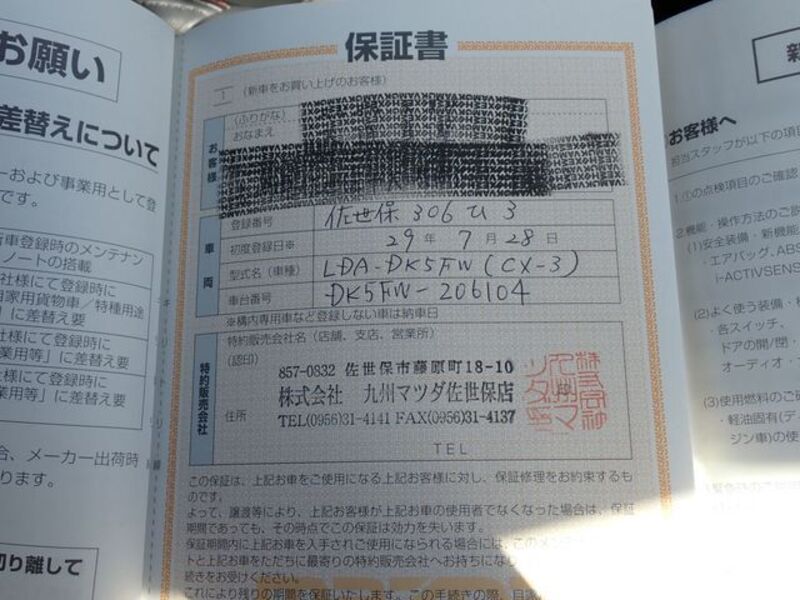 お願い
差替えについて
ーおよび事業用として登
です。
新車登録時のメンテナン
ノートの搭載
社様にて登録時に
自家用貨物車／特種用途
」に差替え要
社様にて登録時に
業用等」に差替え要
社様にて登録時に
業用等」に差替え要
合、メーカー出荷時
ります。
切り離して
キリトリ線
保証書
（新車をお買い上げのお客様）
お客様
（ふりがな）
おなまえ
車両
登録番号 佐世保 306 ひ 3
初度登録日※ 29 年 7 月 28 日
型式名（車種） LDA-DK5FW (CX-3)
車台番号 DK5FW-206104
※構内専用車など登録しない車は納車日
特約販売会社
特約販売会社名（店舗、支店、営業所）
（認印）
857-0832 佐世保市藤原町18-10
株式会社 九州マツダ佐世保店
住所
TEL(0956)31-4141 FAX(0956)31-4137
TEL
この保証は、上記お車をご使用になる上記お客様に対し、保証修理をお約束するも
のです。
よって、譲渡等により、上記お客様が上記お車の使用者でなくなった場合は、保証
期間であっても、その時点でこの保証は効力を失います。
保証期間内に上記お車を入手されご使用になられる場合には、このメンテ
トと上記お車をただちに最寄りの特約販売会社へお持ちにな
続きをお受けください。
これにより残りの期間を保証いたします。この手続きの際、
新
お客様へ
担当スタッフが以下の項目
1.①の点検項目のご確認
2.機能・操作方法のご説
(1)安全装備・新機能
・エアバッグ、ABS
・i-ACTIVSENS
(2)よく使う装備・
・各スイッチ、
ドアの開/閉・
オーディオ・
(3)使用燃料のご
・軽油固有(デ
ジン車)の使